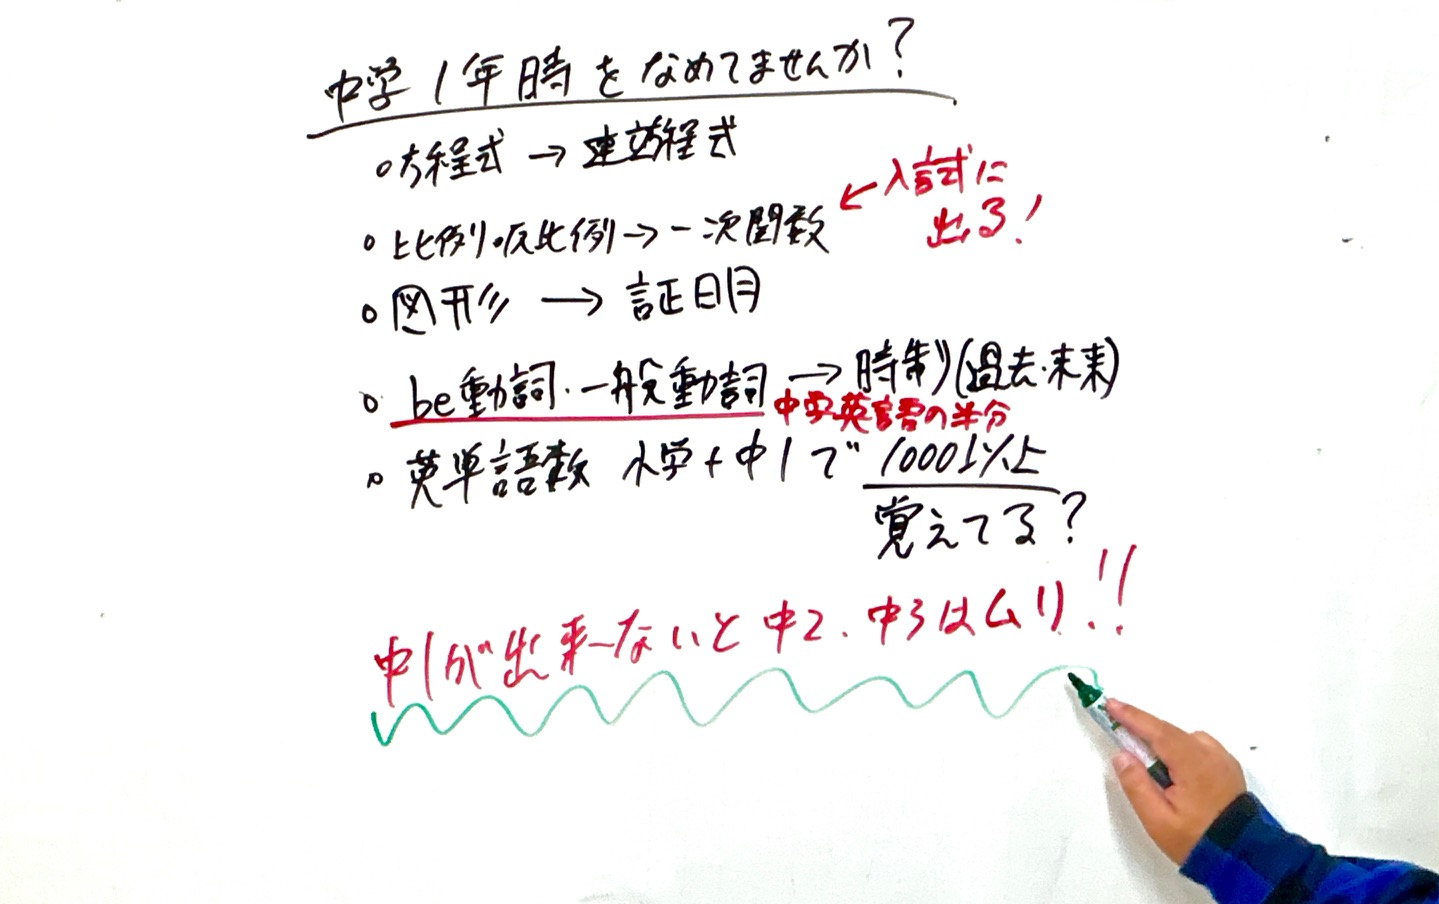 中学1年時をなめてませんか?
○方程式→連立方程式
○比例・反比例→一次関数
←入試に
出る!
○図形→証明
○be動詞・一般動詞→時制(過去・未来)
中学英語の半分
○英単語数 小学+中1で1000以上
覚えてる?
中1が出来ないと中2.中3はムリ!!